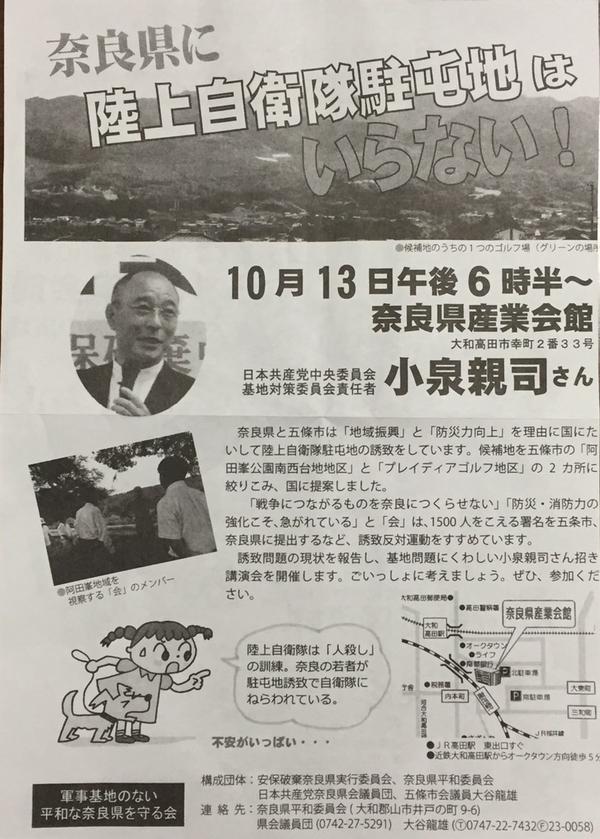 奈良県に
陸上自衛隊駐屯地は
いらない！
●候補地のうちの１つのゴルフ場（グリーンの場所
10月13日午後6時半～
奈良県産業会館
大和高田市幸町２番３３号
日本共産党中央委員会
基地対策委員会責任者 小泉親司さん
奈良県と五條市は「地域振興」と「防災力向上」を理由に国にた
いして陸上自衛隊駐屯地の誘致をしています。候補地を五條市の「阿
田峯公園南西台地地区」と「プレイディアゴルフ地区」の 2 カ所に
絞りこみ、国に提案しました。
「戦争につながるものを奈良につくらせない」「防災・消防力の
強化こそ、急がれている」と「会」は、1500 人をこえる署名を五条市、
奈良県に提出するなど、誘致反対運動をすすめています。
誘致問題の現状を報告し、基地問題にくわしい小泉親司さん招き
講演会を開催します。ごいっしょに考えましょう。ぜひ、参加くだ
さい。
●阿田峯地域を
視察する「会」のメンバー
陸上自衛隊は「人殺し」
の訓練。奈良の若者が
駐屯地誘致で自衛隊に
ねらわれている。
不安がいっぱい・・・
大和高田郵便局●
●高田警察署
奈良県産業会館
大和
高田駅
●オークタウン
●ライフ
●南都銀行
P 北駐車場
●税務署
P 南駐車場
庁舎
内本町
大東町
三和町
近鉄大和高田駅
JR高田駅
ＪＲ桜井線
●ＪＲ高田駅　東出口すぐ
●近鉄大和高田駅からオークタウン方向徒歩５分
軍事基地のない
平和な奈良県を守る会
構成団体：安保破棄奈良県実行委員会、奈良県平和委員会
日本共産党奈良県会議員団、五條市会議員大谷龍雄
連 絡 先：奈良県平和委員会（大和郡山市井戸の町 9-6）
県会議員団 (0742-27-5291)　大谷龍雄（Ⓣ0747-22-7432Ⓕ23-0058）